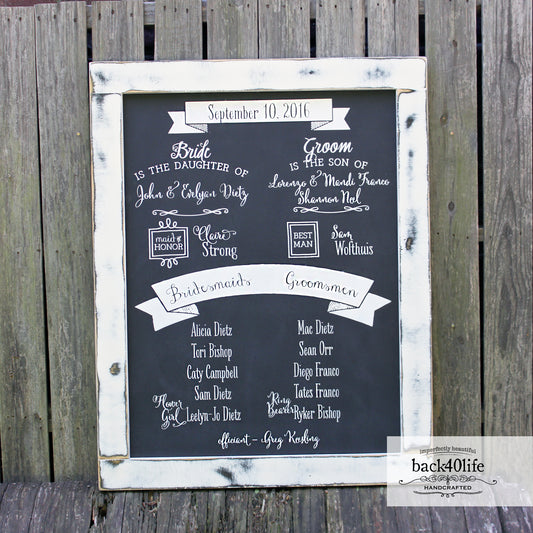 September 10, 2016
Bride
IS THE DAUGHTER OF
John & Evelyan Dietz
Groom
IS THE SON OF
Lorenzo & Mandi Franco
Shannon Neil
maid of HONOR
Claire Strong
BEST MAN
Sam Wolthuis
Bridesmaids
Groomsmen
Alicia Dietz
Tori Bishop
Caty Campbell
Sam Dietz
Flower Girl
Leelyn-Jo Dietz
Mac Dietz
Sean Orr
Diego Franco
Tates Franco
Ring Bearer
Ryker Bishop
officiant - Greg Keesling
imperfectly beautiful
back40life
HANDCRAFTED